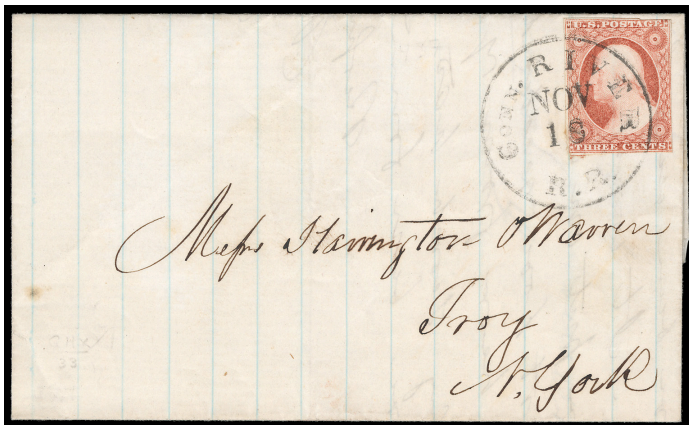 U.S. POSTAGE
THREE CENTS
CONN. RIVER
NOV
R.R.
Messrs Harrington & Warren
Troy
N. York